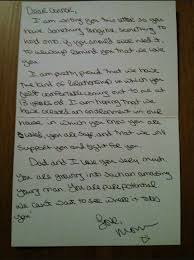 Dear Conner,
I am writing you this letter so you
have something tangible, something to
hold onto if you should ever need it,
to always remind you that we love
you.
I am both proud that we have
the kind of relationship in which you
felt comfortable coming out to me at
15 years old. I am hoping that we
have created an environment in our
house in which you know you are
loved, you are safe, and that we will
support you and fight for you.
Dad and I love you very much
You are growing into such an amazing
young man. You are pure potential
We can't wait to see where it takes
you.
Love,
Mom